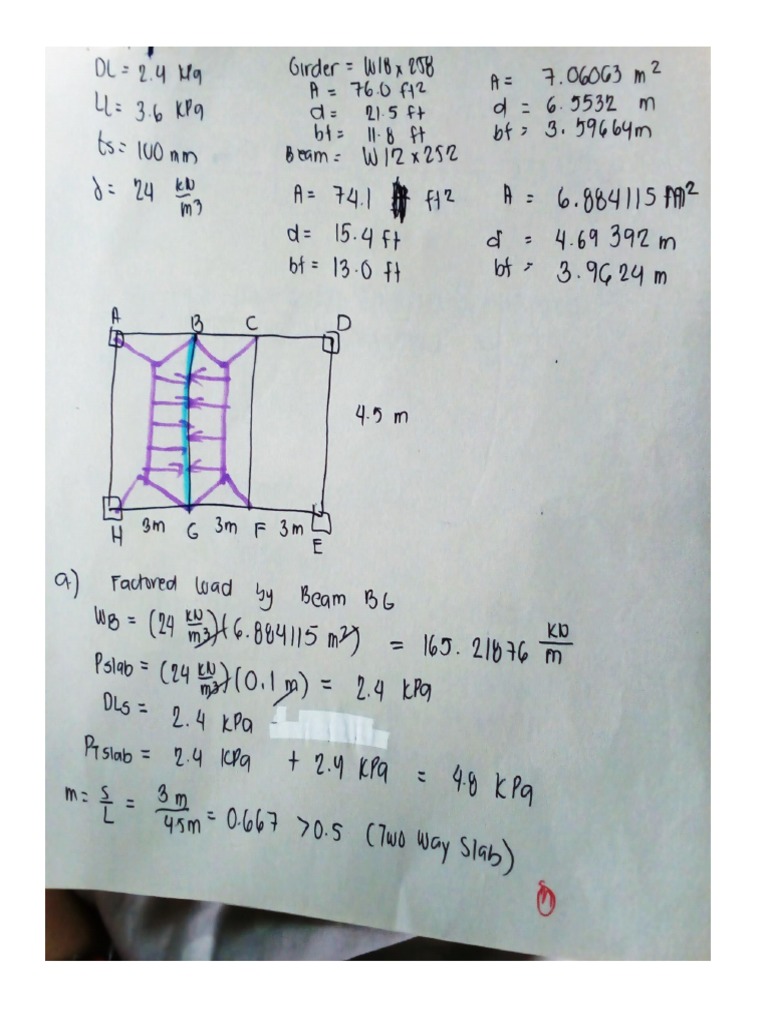 DL = 2.4 kPa
LL = 3.6 KPa
ts = 100 mm
γ = 24 KN/m3
Girder = W18 x 258
A = 76.0 ft2
d = 21.5 ft
bf = 11.8 ft
Beam = W12 x 252
A = 74.1 ft2
d = 15.4 ft
bf = 13.0 ft
A = 7.06063 m2
d = 6.5532 m
bf = 3.59664m
A = 6.884115 m2
d = 4.69392 m
bf = 3.9624 m
A B C D
4.5 m
H 3m G 3m F 3m E
a) Factored load by Beam BG
WB = (24 KN/m3)(6.884115 m2) = 165.21876 KN/m
Pslab = (24 KN/m3)(0.1 m) = 2.4 kPa
DLS = 2.4 kPa
PTslab = 2.4 KPa + 2.4 KPa = 4.8 KPa
m = S/L = 3m/4.5m = 0.667 > 0.5 (Two Way Slab)